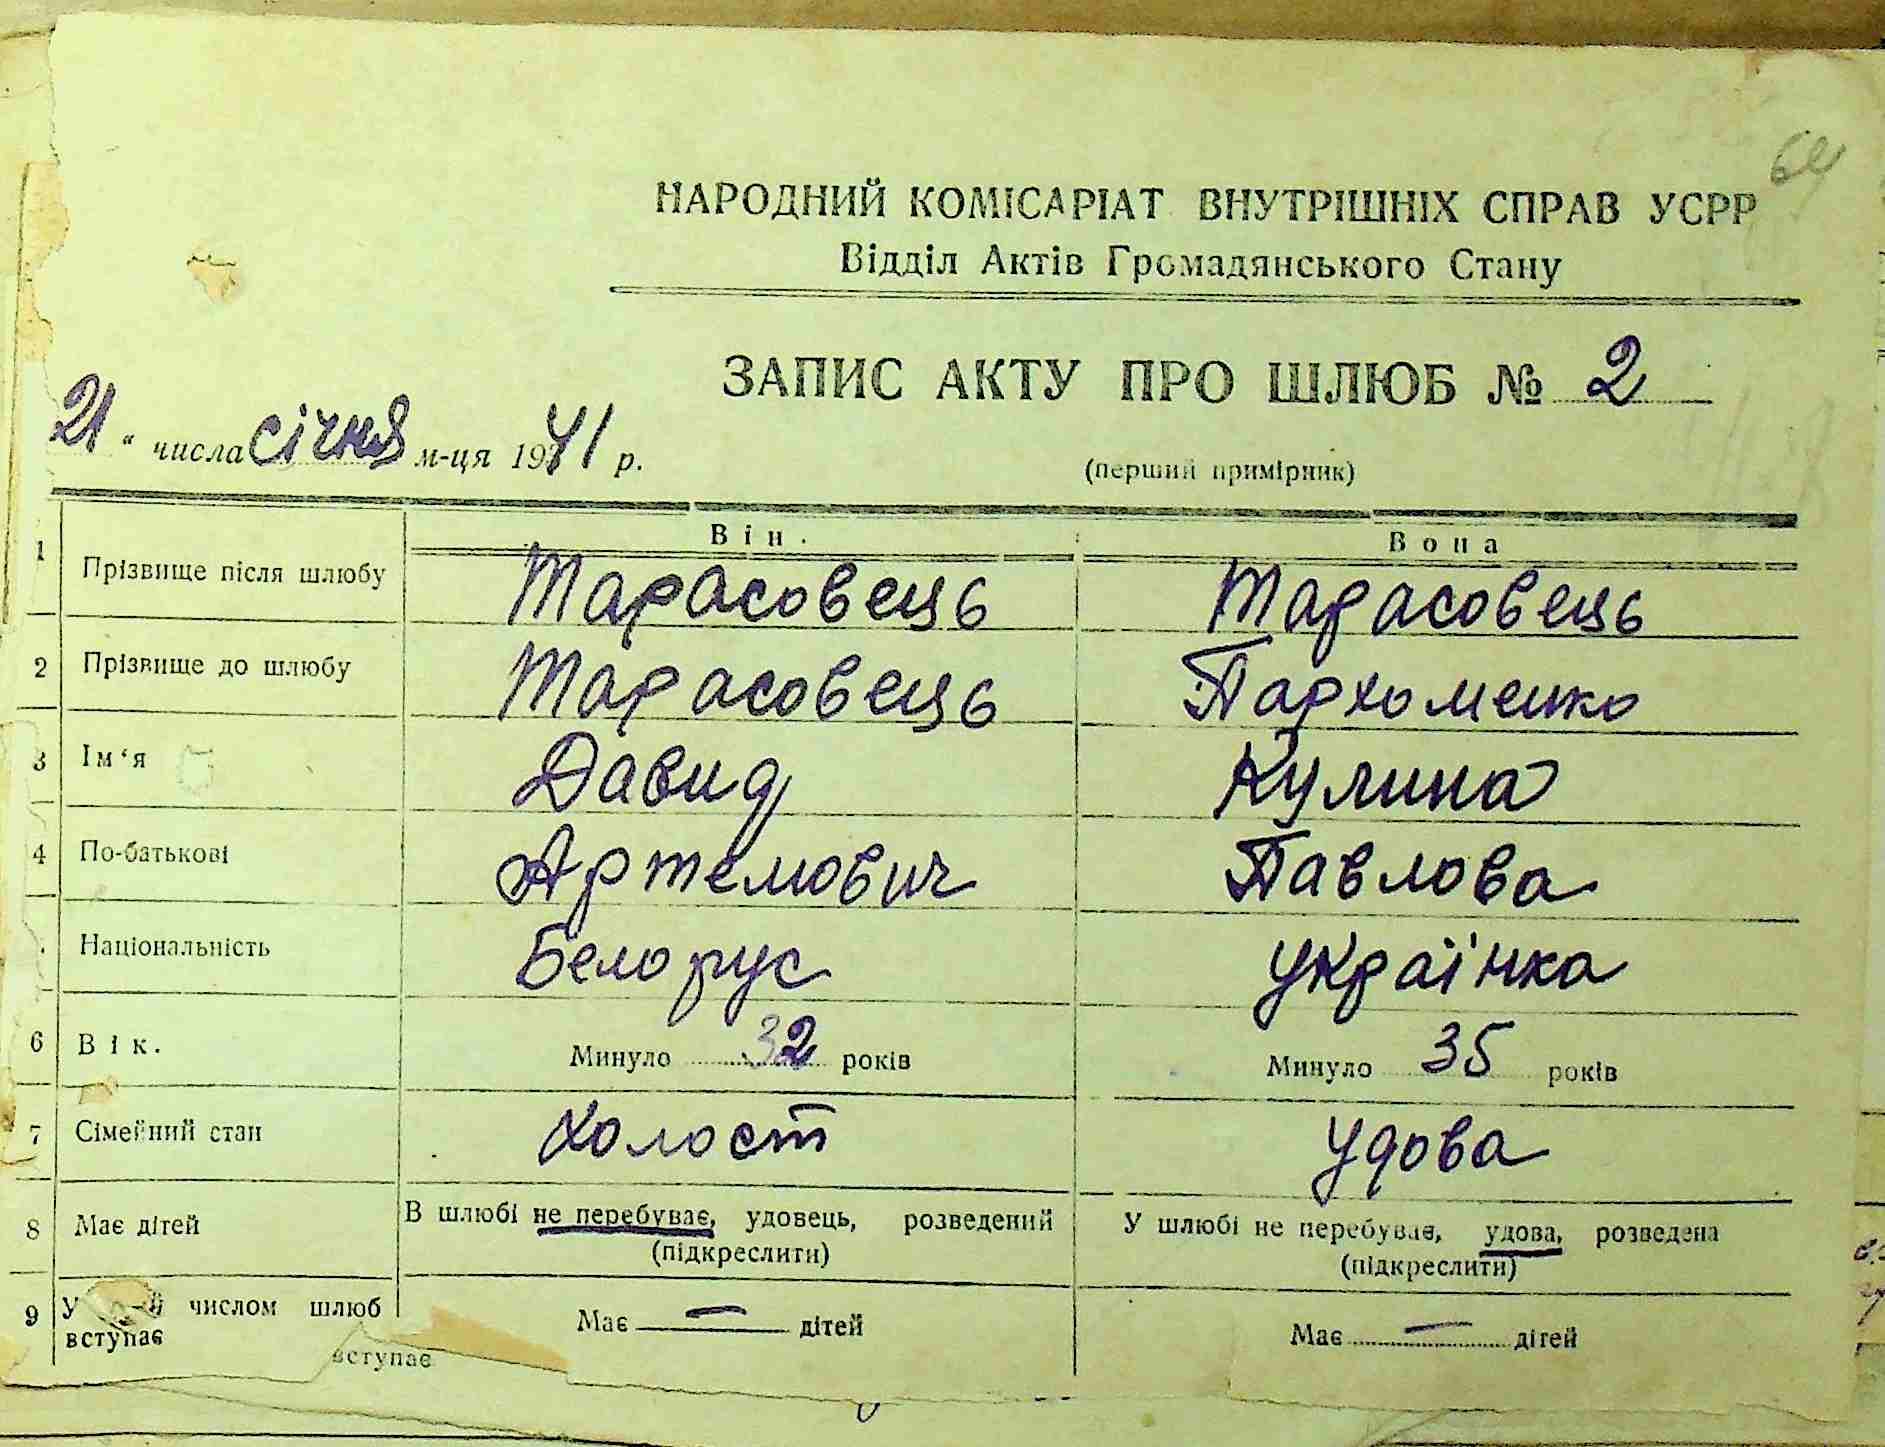 64
НАРОДНИЙ КОМІСАРІАТ ВНУТРІШНІХ СПРАВ УСРР
Відділ Актів Громадянського Стану
ЗАПИС АКТУ ПРО ШЛЮБ № 2
21 " числа січня м-ця 1941 р.
(перший примірник)
Він. Вона
1 Прізвище після шлюбу Тарасовець Тарасовець
2 Прізвище до шлюбу Тарасовець Пархоменко
3 Ім'я Давид Кулина
4 По-батькові Артемович Павлова
Національність Белорус українка
6 Вік. Минуло 32 років Минуло 35 років
7 Сімейний стан Холост удова
8 Має дітей В шлюбі не перебуває, удовець, розведений У шлюбі не перебуває, удова, розведена
(підкреслити) (підкреслити)
9 У числом шлюб Має — дітей Має — дітей
вступає
вступає